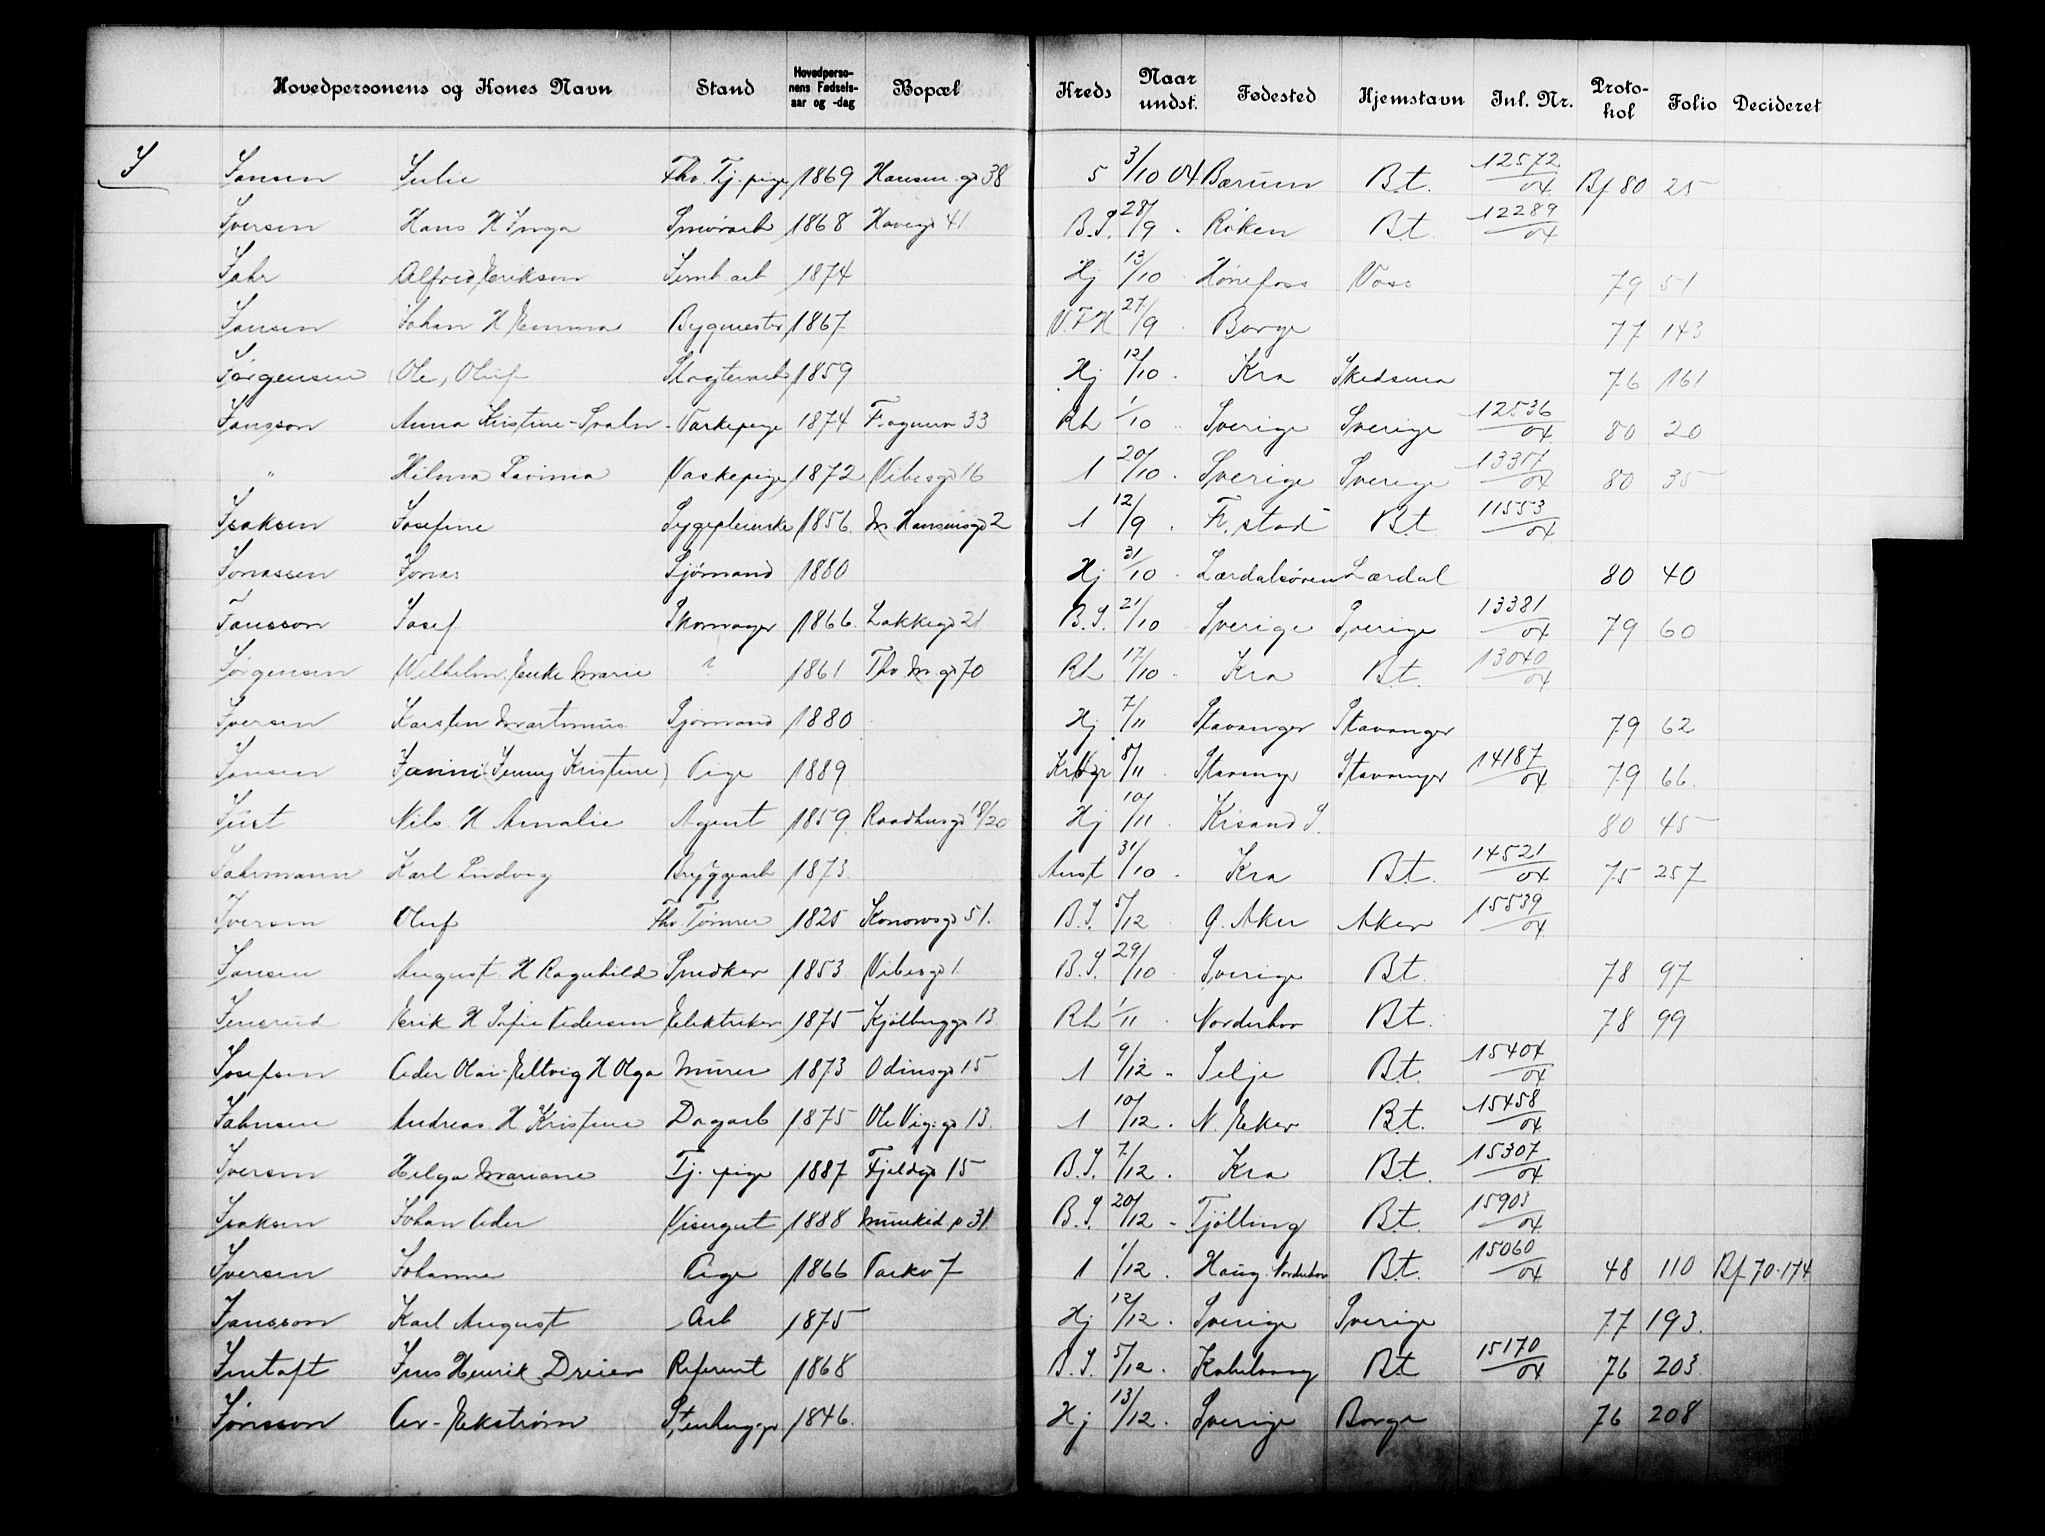 Hovedpersonens og Kones Navn Stand Hovedpersonens Fødselsaar og -dag Bopæl Kreds Naar undst. Fødested Hjemstavn Inl. Nr. Protokol Folio Decideret
J
Jansen Julie Fhv. Tj. pige 1869 Hausm. gd 38 5 3/10 04 Bærum B.t. 12572/04 Bf 80 25
Iversen Hans H Inga Smørarb 1868 Havegd 41 B.S. 28/9 Røken B.t. 12289/04
Jahr Alfred Erikson Jernb. arb 1874 Hj 13/10 Hønefoss Voss 79 51
Jansen Johan H Emma Bygmester 1867 V.F.H 27/9 Borge 77 143
Jørgensen Ole, Oluf Slagterarb 1859 Hj 12/10 Kra Skedsmo 76 161
Jansson Anna Kristine - Vaskepige 1874 F.agnerv 33 Rh 1/10 Sverige Sverige 12536/04 80 20
" Hilma Lavinia Vaskepige 1872 Vibesgd 16 1 20/10 Sverige Sverige 13317/04 80 35
Isaksen Josefine Sygepleierske 1856 M. Hansensgd 2 1 12/9 F. stad B.t. 11553/04
Jonassen Jonas Sjømand 1880 Hj 31/10 Lærdalsøren Lærdal 80 40
Jansson Josef Skomager 1866 Lakkegd 21 B.S. 21/10 Sverige Sverige 13381/04 79 60
Jørgensen Vilhelm. Enke Marie 1861 Thv. M. gd 70 Rh 17/10 Kra B.t. 13040/04
Iversen Karsten Martinius Sjømand 1880 Hj 7/11 Stavanger Stavanger 79 62
Jansen Janni (Jenny Kristine) Pige 1889 8/11 Stavanger Stavanger 14187/04 79 66
Just Nils H Amalie Agent 1859 Raadhusgd 18/20 Hj 10/11 Krsand S. 80 45
Jahrmann Karl Ludvig Bryggearb 1873 Anst 31/10 Kra B.t. 14521/04 75 257
Iversen Oluf Fhv. Tømrer 1825 Konowsgd 51 B.S. 5/12 Ø. Aker Aker 15539/04
Jansen August H Ragnhild Snedker 1853 Vibesgd 1 B.S. 29/10 Sverige B.t. 78 97
Jensrud Erik H Sofie Pedersen Elektriker 1875 Kjølberggd 13 Rh 1/11 Norderhov B.t. 78 99
Josefsen Peder Olai Eltvig H Olga Murer 1873 Odinsgd 15 1 9/12 Selje B.t. 15404/04
Jahnsen Andreas H Kristine Dagarb 1875 Ole Vig. gd 13 1 10/12 N. Eker B.t. 15458/04
Iversen Helga Mariane Tj. pige 1887 Fjeldgd 15 B.S. 7/12 Kra B.t. 15307/04
Isaksen Johan Peder Visergut 1888 Munked p 31 B.S. 20/12 Tjølling B.t. 15903/04
Iversen Johanne Pige 1866 Parkv 7 1 1/12 Haug. Norderhov B.t. 15060/04 48 110 Bf 70-174
Jansson Karl August Arb 1875 Hj 12/12 Sverige Sverige 77 193
Jntoft Jens Henrik Dreier Referent 1868 B.S. 5/12 Kabelvaag B.t. 15170/04 76 203
Jønsson Per Ekstrøm Stenhugger 1846 Hj 13/12 Sverige Borge 76 208